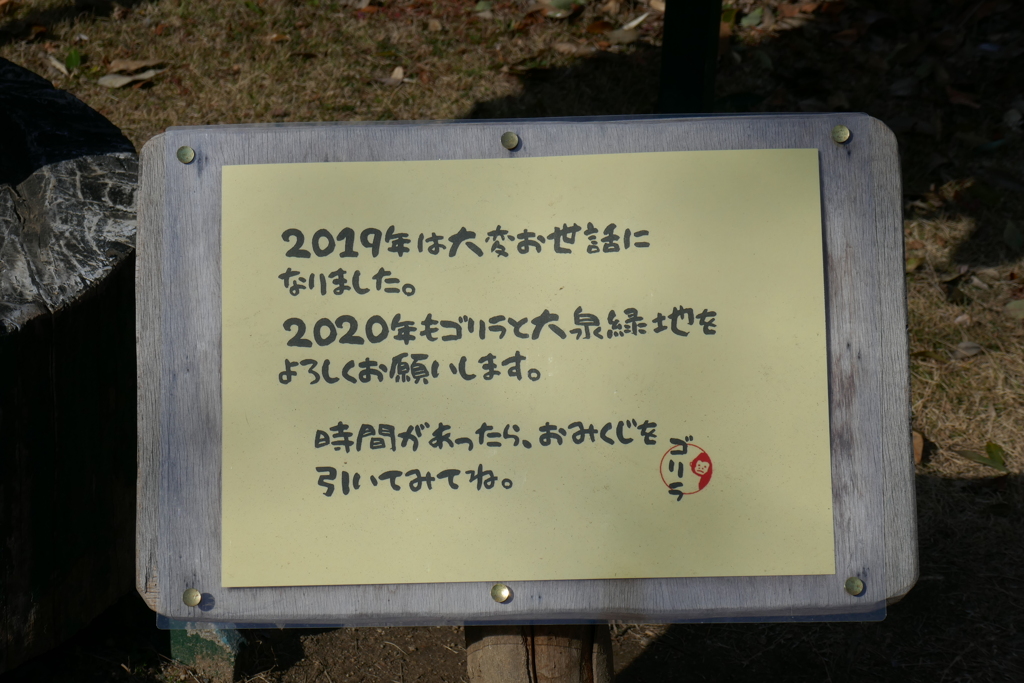 2019年は大変お世話に
なりました。
2020年もゴリラと大泉緑地を
よろしくお願いします。
時間があったら、おみくじを
引いてみてね。
ゴリラ